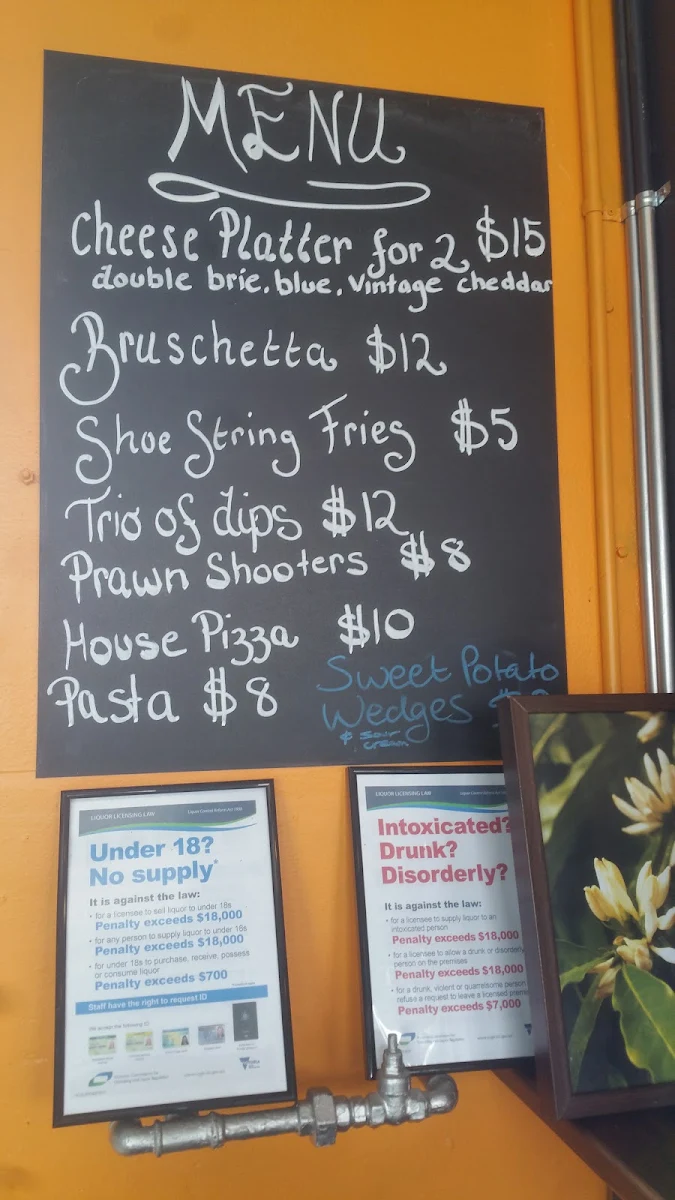 MENU
Cheese Platter for 2 $15
double brie. blue. vintage cheddar
Bruschetta $12
Shoe String Fries $5
Trio of dips $12
Prawn Shooters $8
House Pizza $10
Pasta $8
Sweet Potato
Wedges $
& sour
cream
LIQUOR LICENSING LAW
Under 18?
No supply*
It is against the law:
• for a licensee to sell liquor to under 18s
Penalty exceeds $18,000
• for any person to supply liquor to under 18s
Penalty exceeds $18,000
• for under 18s to purchase, receive, possess
or consume liquor
Penalty exceeds $700
Staff have the right to request ID
LIQUOR LICENSING LAW
Intoxicated?
Drunk?
Disorderly?
It is against the law:
• for a licensee to supply liquor to an
intoxicated person
Penalty exceeds $18,000
• for a licensee to allow a drunk or disorderly
person on the premises
Penalty exceeds $18,000
• for a drunk, violent or quarrelsome person
refuse a request to leave a licensed
Penalty exceeds $7,000